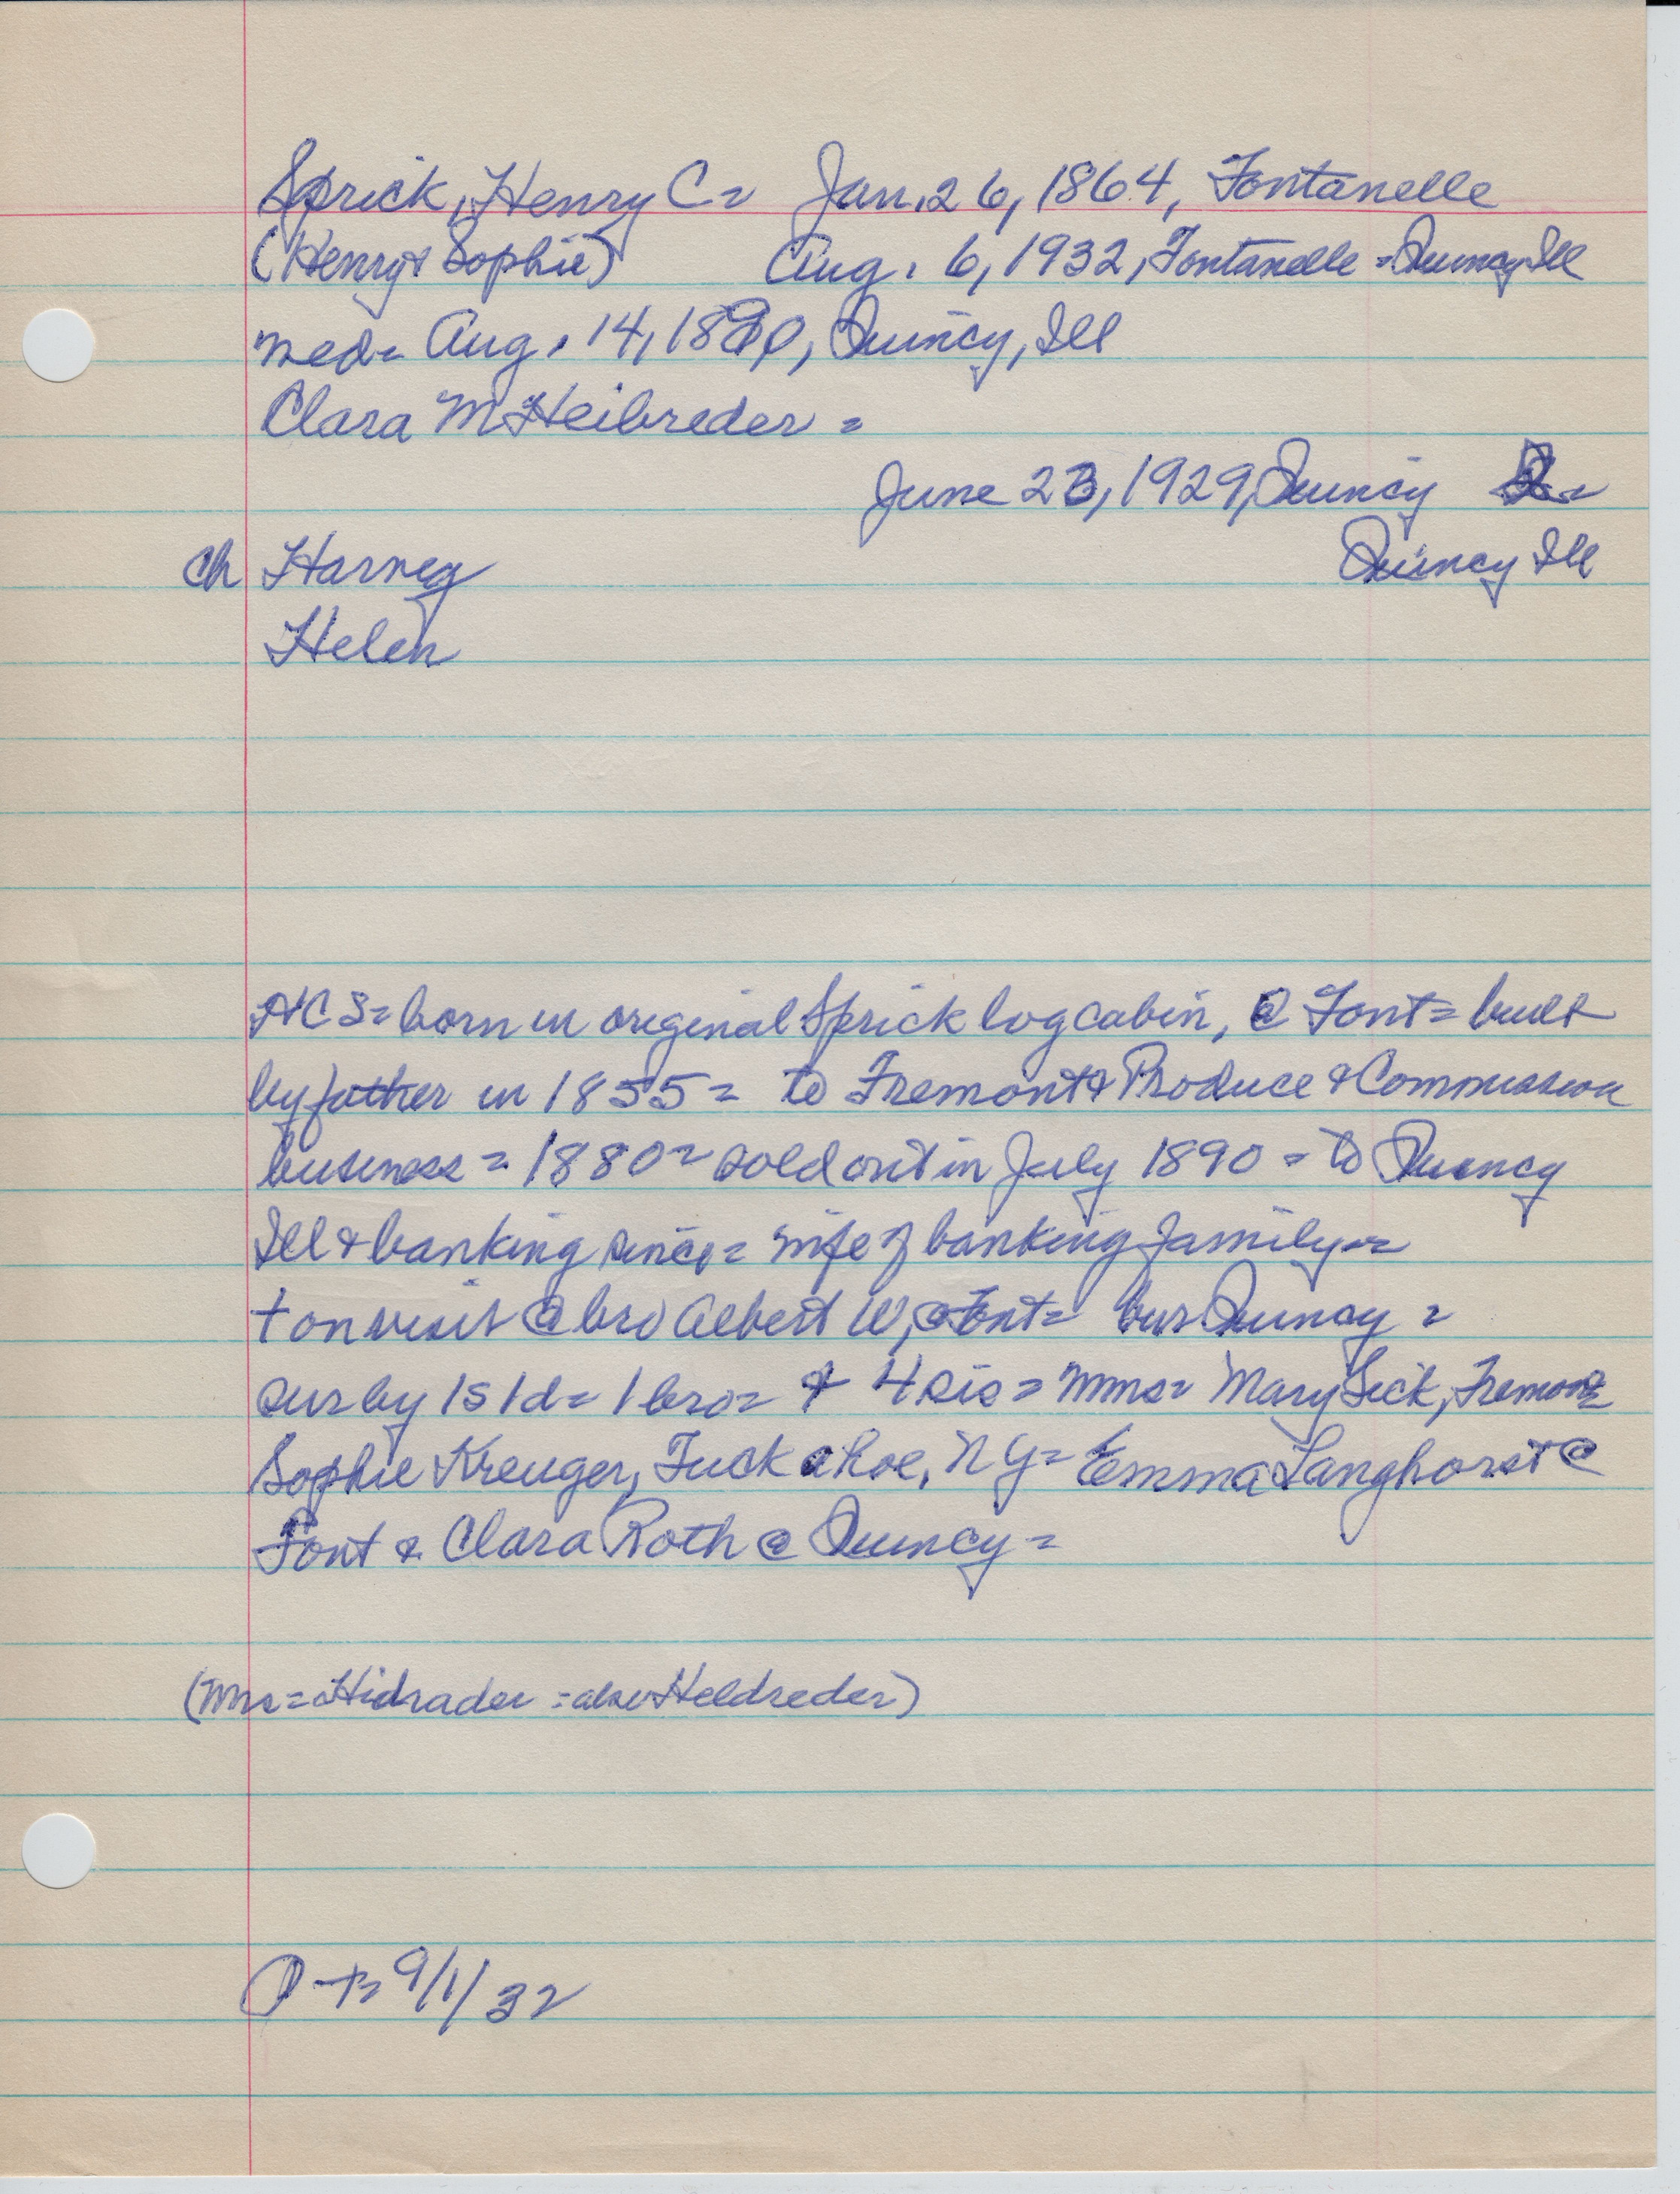 Sprick, Henry C = Jan. 26, 1864, Fontanelle
(Henry & Sophie) Aug. 6, 1932, Fontanelle = Quincy Ill
med = Aug. 14, 1890, Quincy, Ill
Clara M Heibreder =
June 23, 1929, Quincy
Quincy Ill
ch Harvey
Helen
HCS = born in original Sprick log cabin, @ Font = built
by father in 1855 = to Fremont & Produce & Commission
business = 1880 = sold out in July 1890 = to Quincy
Ill & banking since = wife of banking family =
† on visit @ bro Albert W, @ Font = bur Quincy =
sur by 1s 1d = 1 bro = & 4 sis = mms = Mary Sick, Fremont
Sophie Kreuger, Tuckahoe, NY = Emma Langhorst @
Font & Clara Roth @ Quincy =
(Mrs = Hidrader = also Heldreder)
9/1/32